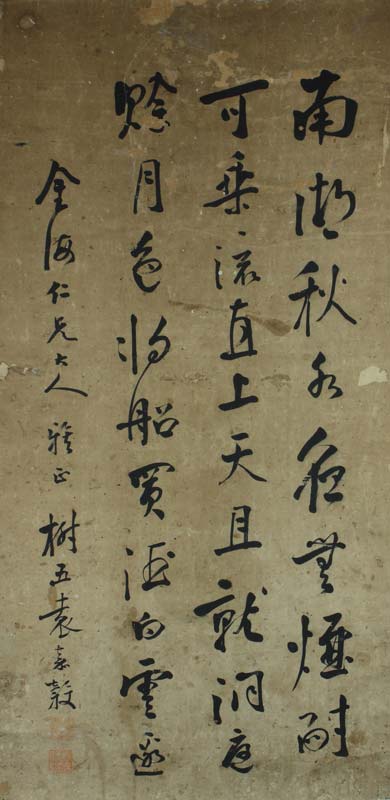 南湖秋水夜無煙耐
可乗流直上天且就洞庭
賒月色將船買酒白雲邊
金海仁兄大人 雅正 樹五袁嘉穀